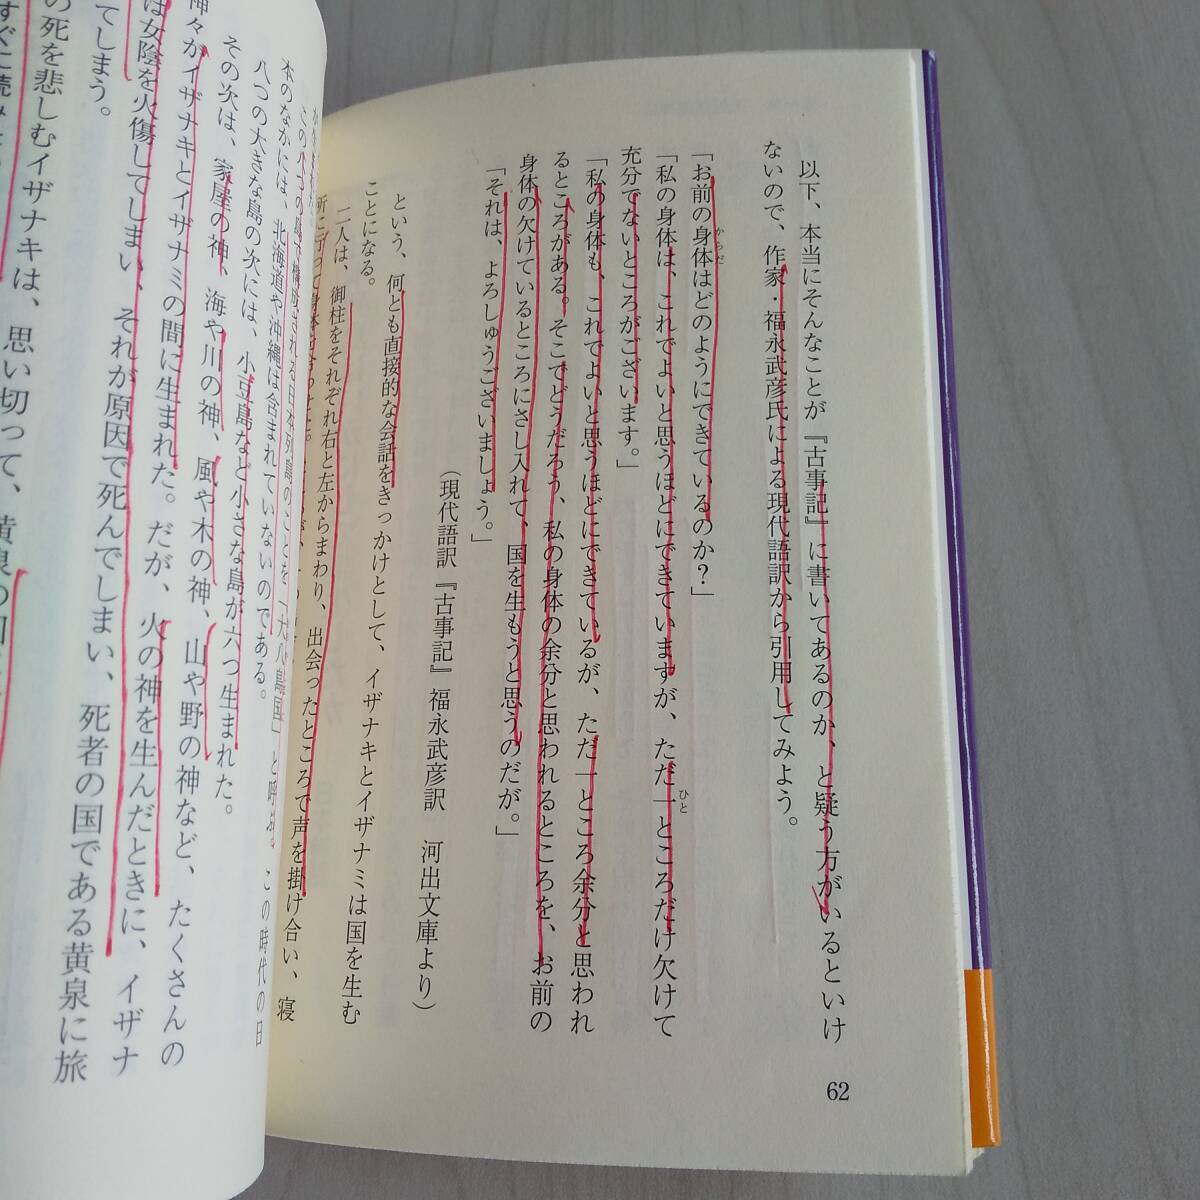 以下、本当にそんなことが『古事記』に書いてあるのか、と疑う方がいるといけ
ないので、作家・福永武彦氏による現代語訳から引用してみよう。
「お前の身体はどのようにできているのか?」
からだ
「私の身体は、これでよいと思うほどにできていますが、ただ一ところだけ欠けて
ひと
充分でないところがございます。」
「私の身体も、これでよいと思うほどにできているが、ただ一ところ余分と思われ
るところがある。そこでどうだろう、私の身体の余分と思われるところを、お前の
身体の欠けているところにさし入れて、国を生もうと思うのだが。」
「それは、よろしゅうございましょう。」
(現代語訳『古事記』福永武彦訳 河出文庫より)
という、何とも直接的な会話をきっかけとして、イザナキとイザナミは国を生む
ことになる。
二人は、御柱をそれぞれ右と左からまわり、出会ったところで声を掛け合い、寝
62
この八つの島で構成される日本列島のことを「大八島国」と呼ぶ。この時代の日
本のなかには、北海道や沖縄は含まれていないのである。
八つの大きな島の次には、小豆島など小さな島が六つ生まれた。
その次は、家屋の神、海や川の神、風や木の神、山や野の神など、たくさんの
神々がイザナキとイザナミの間に生まれた。だが、火の神を生んだときに、イザナ
は女陰を火傷してしまい、それが原因で死んでしまい、死者の国である黄泉に旅
てしまう。
の死を悲しむイザナキは、思い切って、黄泉の国